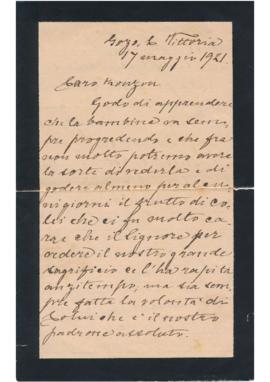 Gozo, Vittoria
17 maggio 1921.
Caro
Godo di apprendere
che la bambina va sem-
pre progredendo e che fra
non molto potremo avere
la sorte di vederla e di
godere almeno per alcu-
ni giorni il frutto di co-
lei che ci fu molto ca-
ra e che il Signore per
vedere il nostro grande
sacrificio ce l'ha rapita
anzitempo, ma sia sem-
pre fatta la volontà di
Colui che è il nostro
padrone assoluto.